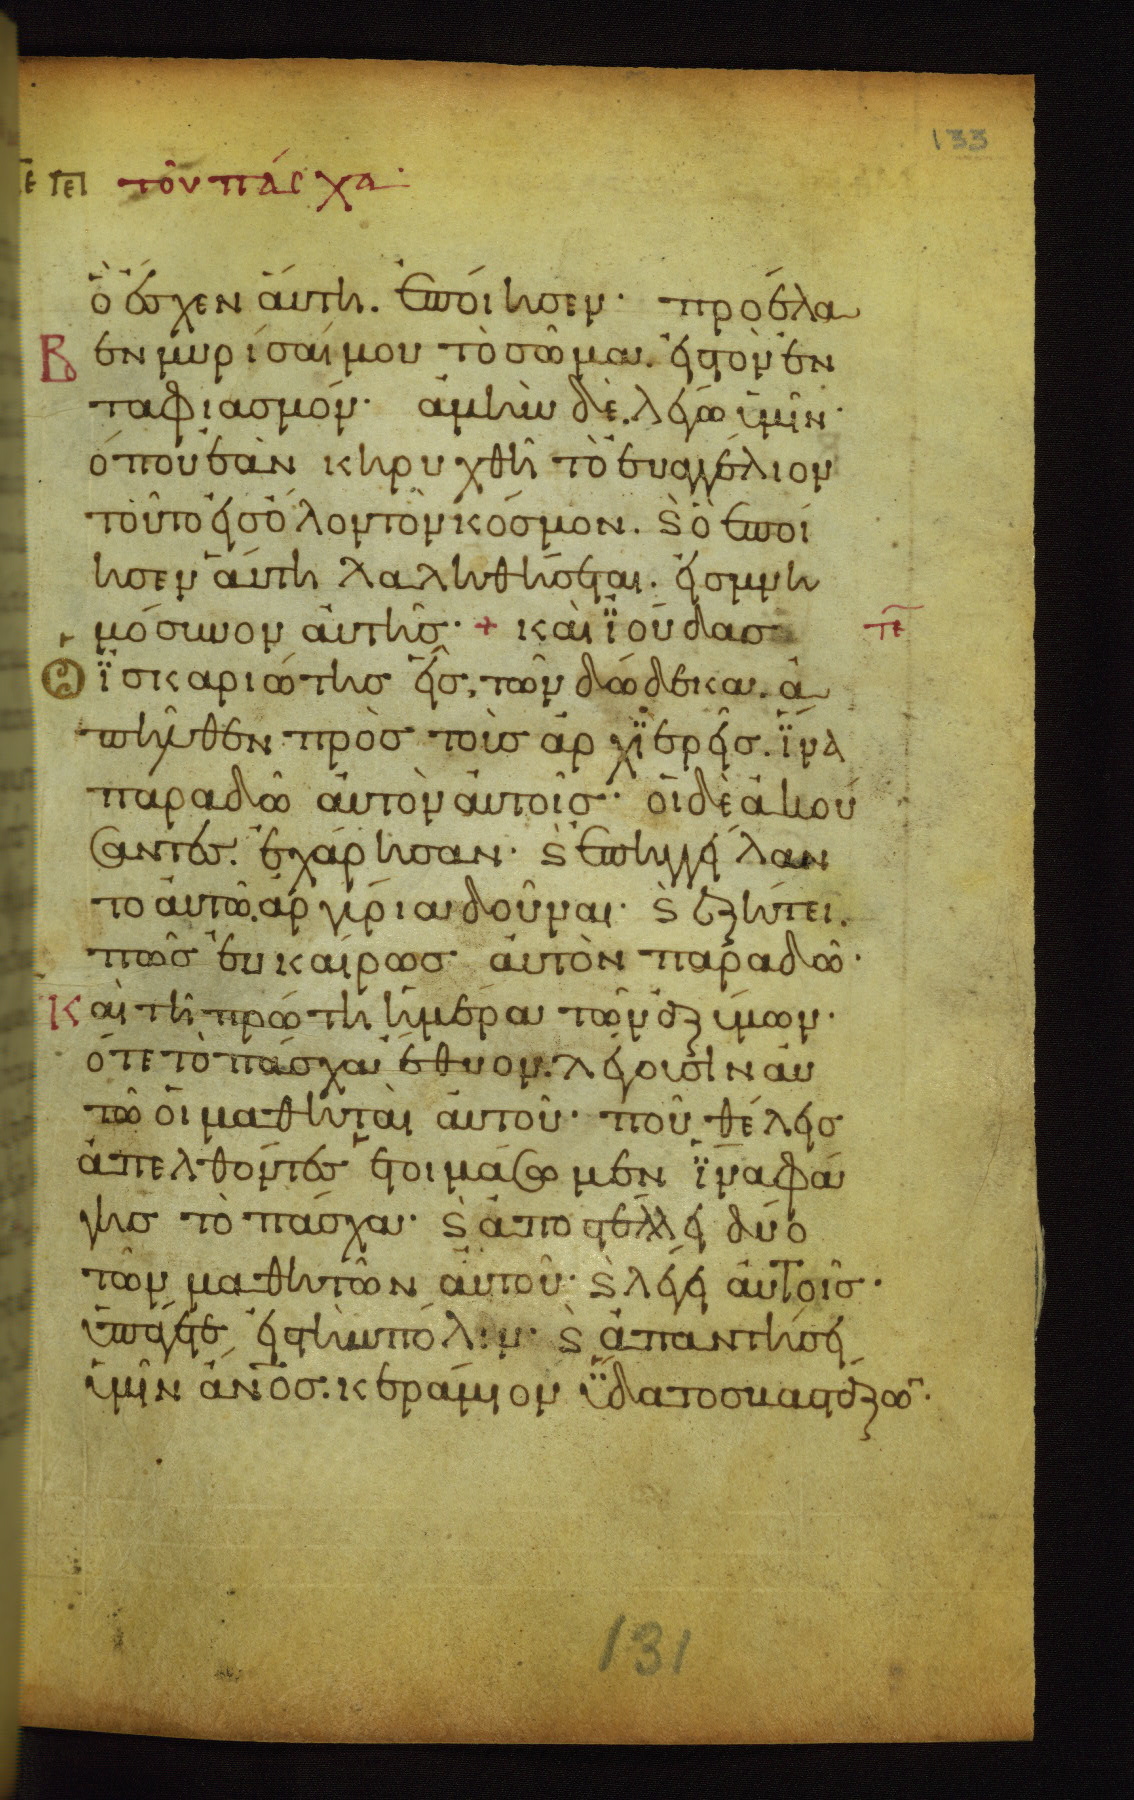 133
τὸν πάσχα·
ὃ ἔσχεν αὕτη. ἐποίησεν· προέλα
Β
βεν μυρίσαι μου τὸ σῶμα. εἰς τὸν ἐν
ταφιασμόν· ἀμὴν δὲ. λέγω ὑμῖν·
ὅπου ἐὰν κηρυχθῆ τὸ εὐαγγέλιον
τοῦτο εἰς ὅλον τὸν κόσμον. ϛ ὃ ἐποί
ησεν αὕτη λαληθήσεται. εἰς μνη
μόσυνον αὐτῆς· + καὶ ϊούδας
ϊσκαριώτης εἷς, τῶν δώδεκα. ἀ
πῆλθεν πρὸς τοὶς ἀρχϊερεῖς. ϊνα
παραδῶ αὐτὸν αὐτοῖς· οἱ δὲ ἀκού
σαντες. ἐχάρησαν· ϛ ἐπηγγείλαν
το αὐτῶ. ἀργύρια δοῦναι· ϛ ἐζήτει.
πῶς εὐκαίρως αὐτὸν παραδῶ·
Καὶ τῆ πρώτη ἡμέρα τῶν ἀζύμων·
ὅτε τὸ πάσχα ἔθυον. λέγουσιν αὐ
τῶ οἱ μαθηταὶ αὐτοῦ· ποῦ θέλεις
ἀπελθόντες ἑτοιμάσωμεν ϊνα φά
γης τὸ πάσχα· ϛ ἀποστέλλει δύο
τῶν μαθητῶν αὐτοῦ· ϛ λέγει αὐτοῖς·
ὑπάγετε εἰς τὴν πόλιν· ϛ ἀπαντήσει
ὑμῖν ἄνος. κεράμιον ϋδατος βαστάζων·
131